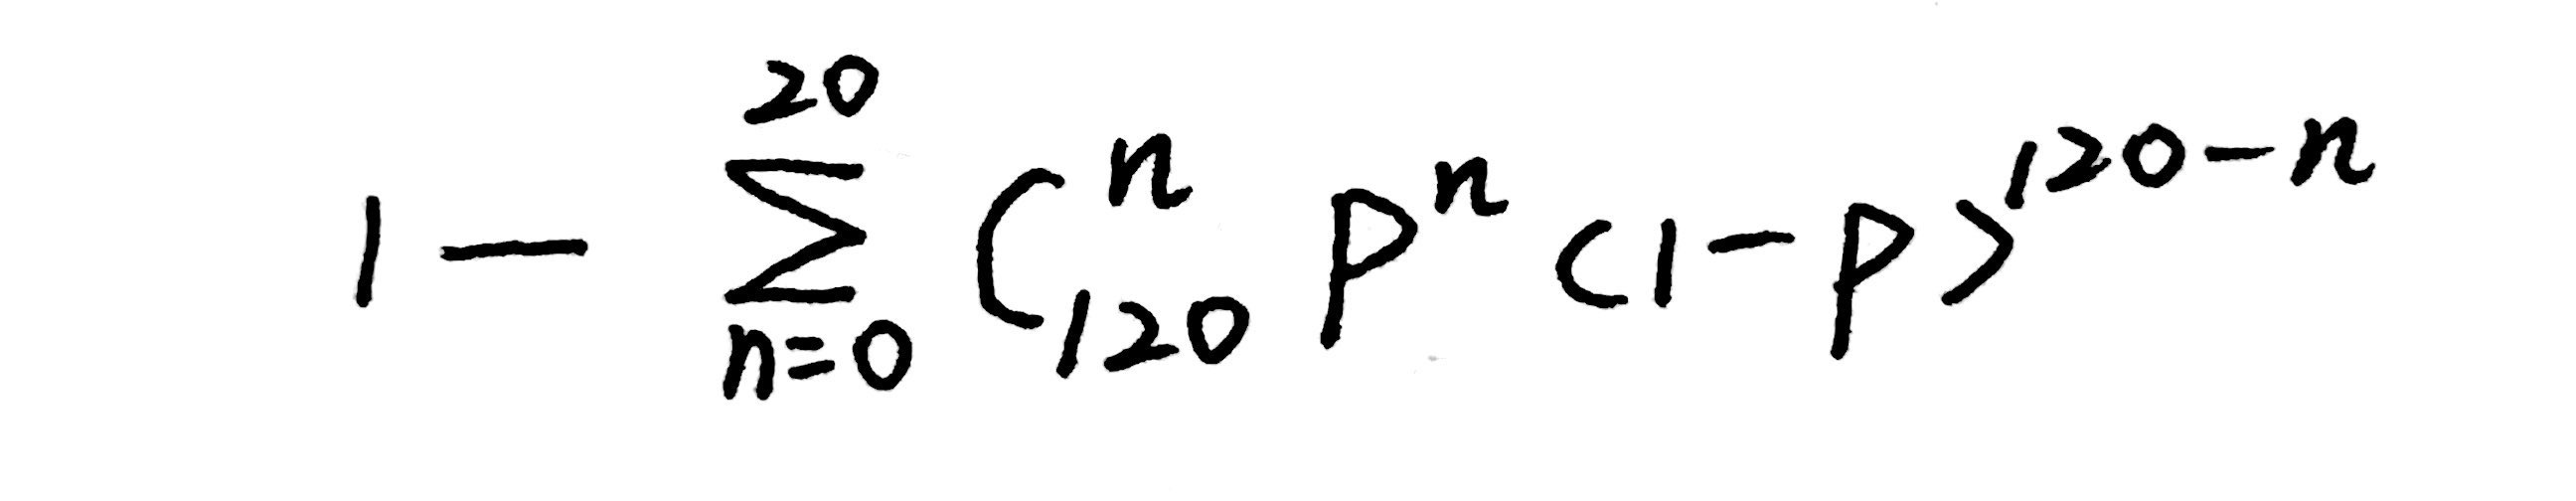 1 - \sum_{n=0}^{20} C_{120}^{n} p^{n} (1-p)^{120-n}